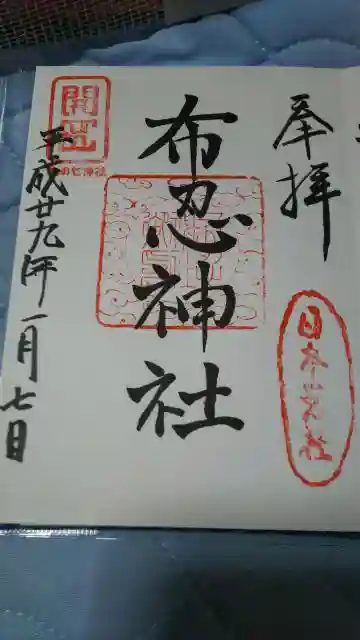 奉拝
布忍神社
平成廿九年一月七日
開運
布忍神社